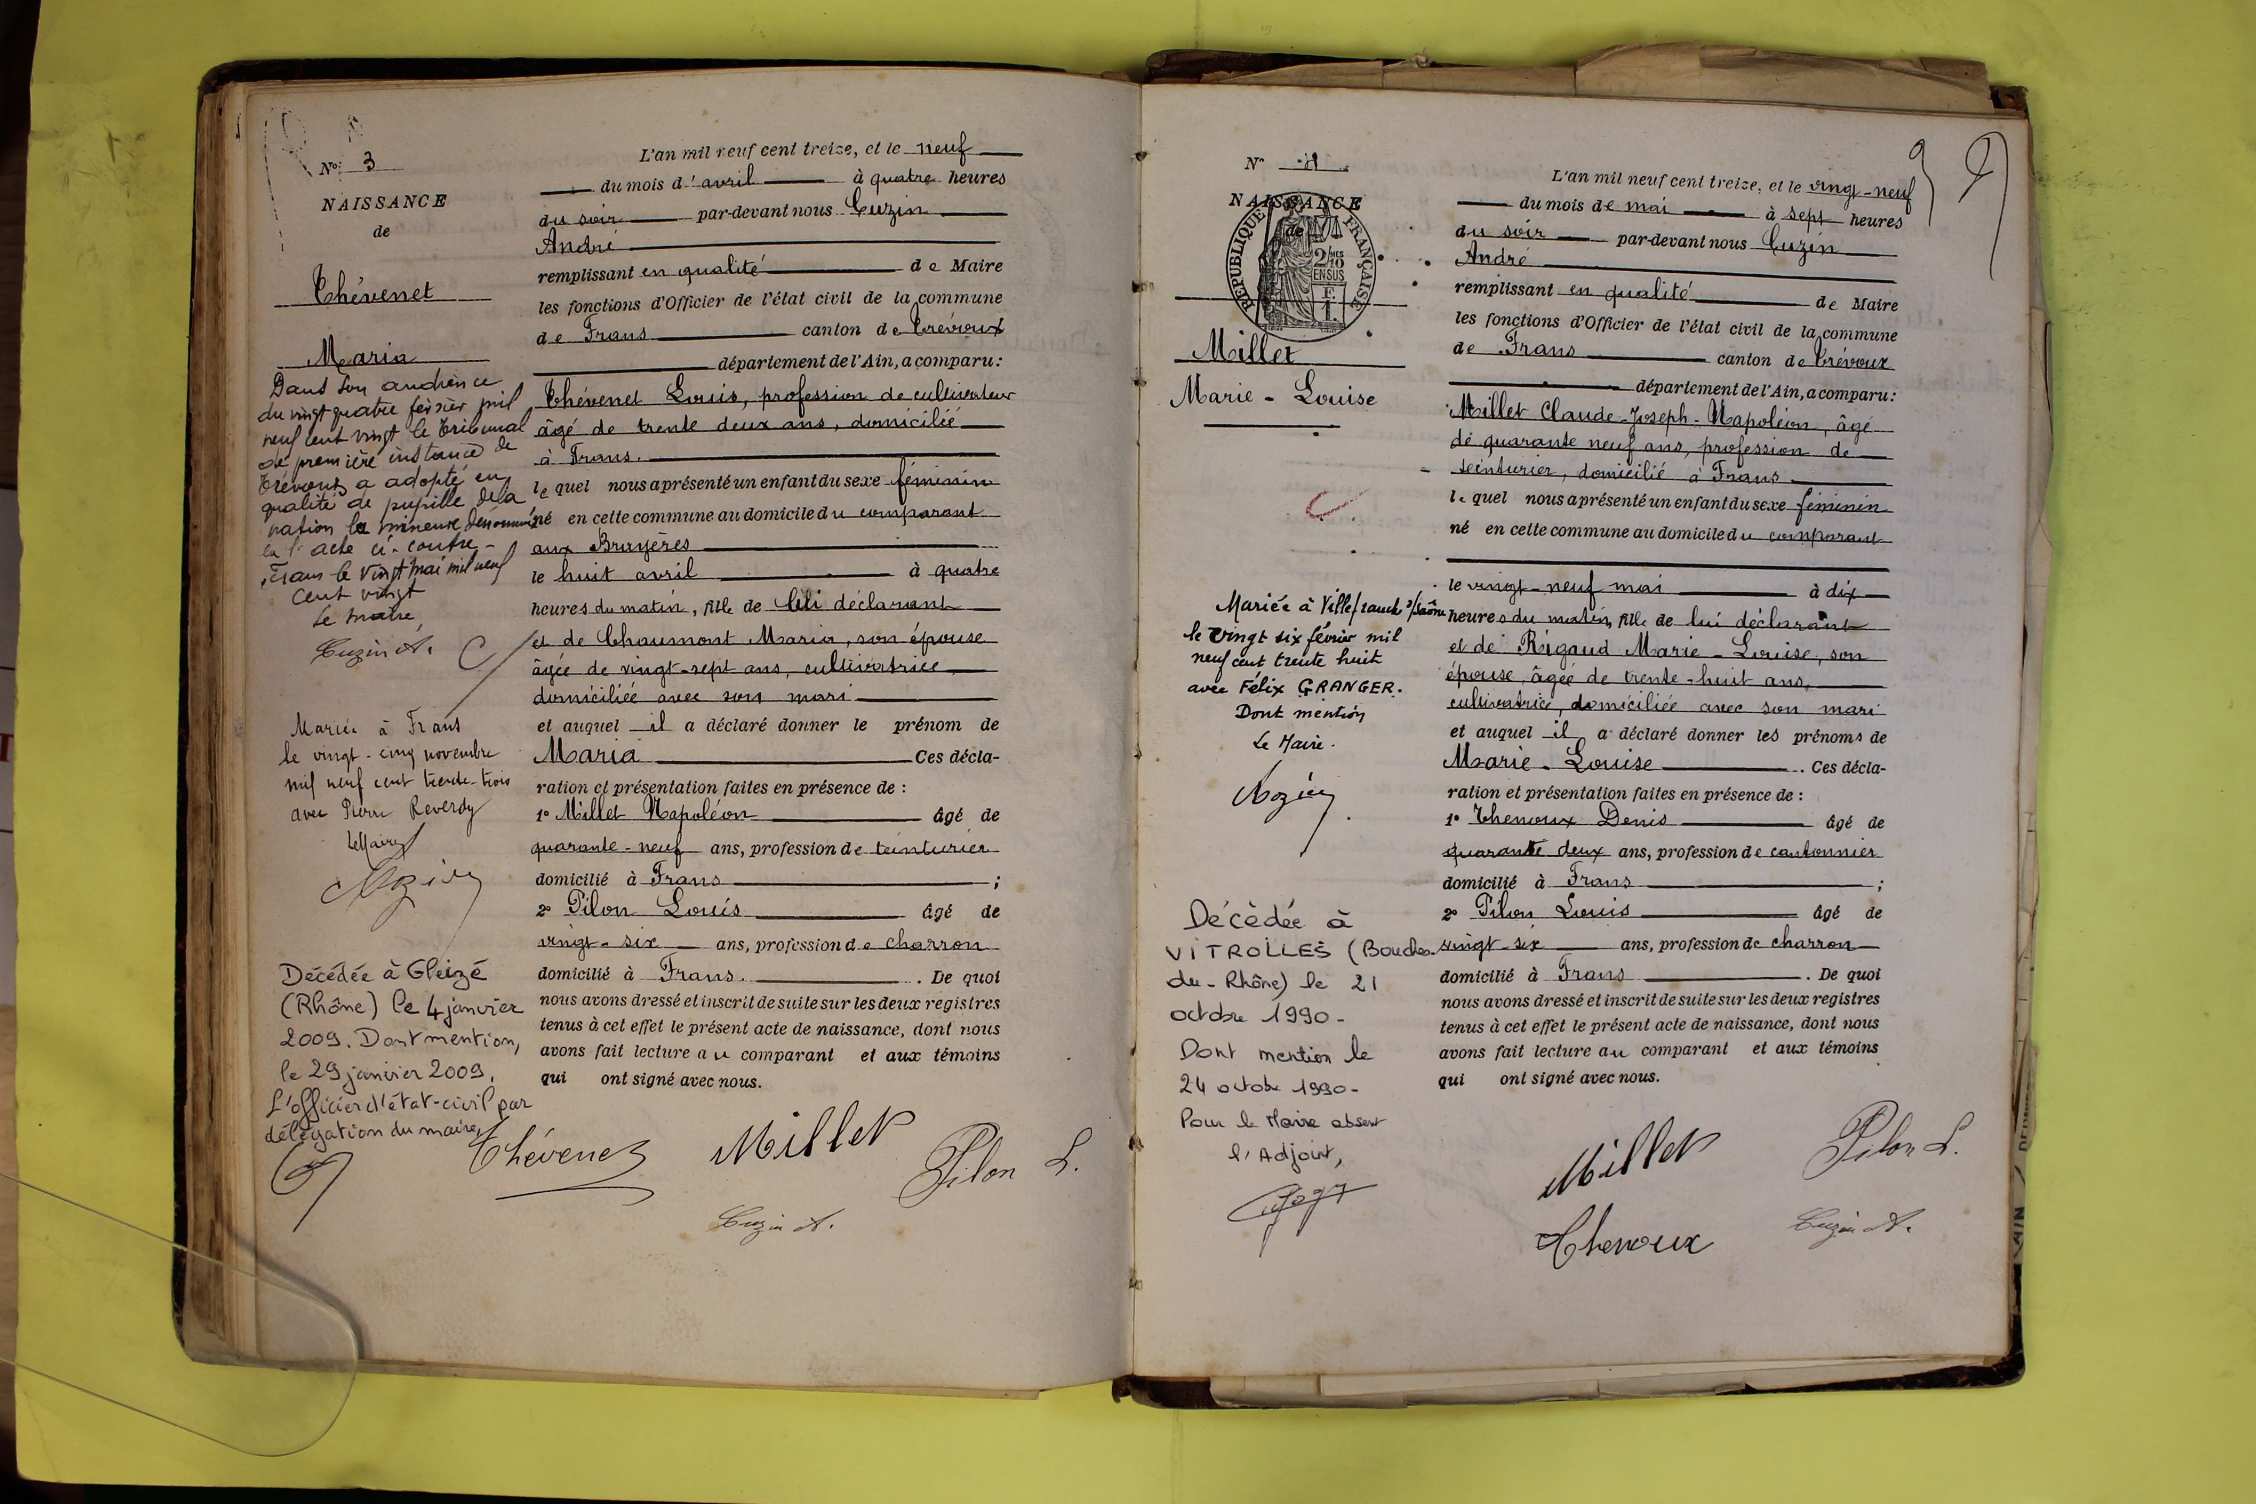 N° 3
NAISSANCE
de
Thévenet
Maria
Dans son audience
du vingt quatre février mil
neuf cent vingt le Tribunal
de première instance de
Trévoux a adopté en
qualité de pupille de la
nation la mineure dénommée
en l'acte ci-contre -
Frans le vingt mai mil neuf
cent vingt
Le maire,
Cuzin A.
Mariée à Frans
le vingt-cinq novembre
mil neuf cent trente-trois
avec Pierre Reverdy
Le Maire
Décédée à Gleizé
(Rhône) le 4 janvier
2009. Dont mention,
le 29 janvier 2009.
L'officier d'état-civil par
délégation du maire,
L'an mil neuf cent treize, et le neuf
du mois d'avril à quatre heures
du soir par-devant nous Cuzin
André
remplissant en qualité de Maire
les fonctions d'Officier de l'état civil de la commune
de Frans canton de Trévoux
département de l'Ain, a comparu :
Thévenet Louis, profession de cultivateur
âgé de trente deux ans, domiciliée
à Frans.
lequel nous a présenté un enfant du sexe féminin
né en cette commune au domicile du comparant
aux Bruyères
le huit avril à quatre
heures du matin, fille de lui déclarant
et de Chaumont Maria, son épouse
âgée de vingt-sept ans, cultivatrice
domiciliée avec son mari
et auquel il a déclaré donner le prénom de
Maria Ces décla-
ration et présentation faites en présence de :
1° Millet Napoléon âgé de
quarante-neuf ans, profession de teinturier
domicilié à Frans ;
2° Pilon Louis âgé de
vingt-six ans, profession de charron
domicilié à Frans. . De quoi
nous avons dressé et inscrit de suite sur les deux registres
tenus à cet effet le présent acte de naissance, dont nous
avons fait lecture au comparant et aux témoins
qui ont signé avec nous.
Thévenet
Millet
Pilon L.
Cuzin A.
N°
NAISSANCE
de
RÉPUBLIQUE FRANÇAISE
2/10
EN SUS
Millet
Marie-Louise
Mariée à Villefranche s/Saône
le vingt six février mil
neuf cent trente huit
avec Félix GRANGER.
Dont mention
Le Maire.
Décédée à
VITROLLES (Bouches-
du-Rhône) le 21
octobre 1990-
Dont mention le
24 octobre 1990-
Pour le Maire absent
l'Adjoint,
L'an mil neuf cent treize, et le vingt-neuf
du mois de mai à sept heures
du soir par-devant nous Cuzin
André
remplissant en qualité de Maire
les fonctions d'Officier de l'état civil de la commune
de Frans canton de Trévoux
département de l'Ain, a comparu :
Millet Claude-Joseph-Napoléon, âgé
de quarante neuf ans, profession de
teinturier, domicilié à Frans
lequel nous a présenté un enfant du sexe féminin
né en cette commune au domicile du comparant
le vingt-neuf mai à dix
heures du matin, fille de lui déclarant
et de Rigaud Marie-Louise, son
épouse, âgée de trente-huit ans,
cultivatrice, domiciliée avec son mari
et auquel il a déclaré donner les prénoms de
Marie-Louise . Ces décla-
ration et présentation faites en présence de :
1° Thenoux Denis âgé de
quarante deux ans, profession de cantonnier
domicilié à Frans ;
2° Pilon Louis âgé de
vingt-six ans, profession de charron
domicilié à Frans . De quoi
nous avons dressé et inscrit de suite sur les deux registres
tenus à cet effet le présent acte de naissance, dont nous
avons fait lecture au comparant et aux témoins
qui ont signé avec nous.
Millet
Pilon L.
Thenoux
Cuzin A.